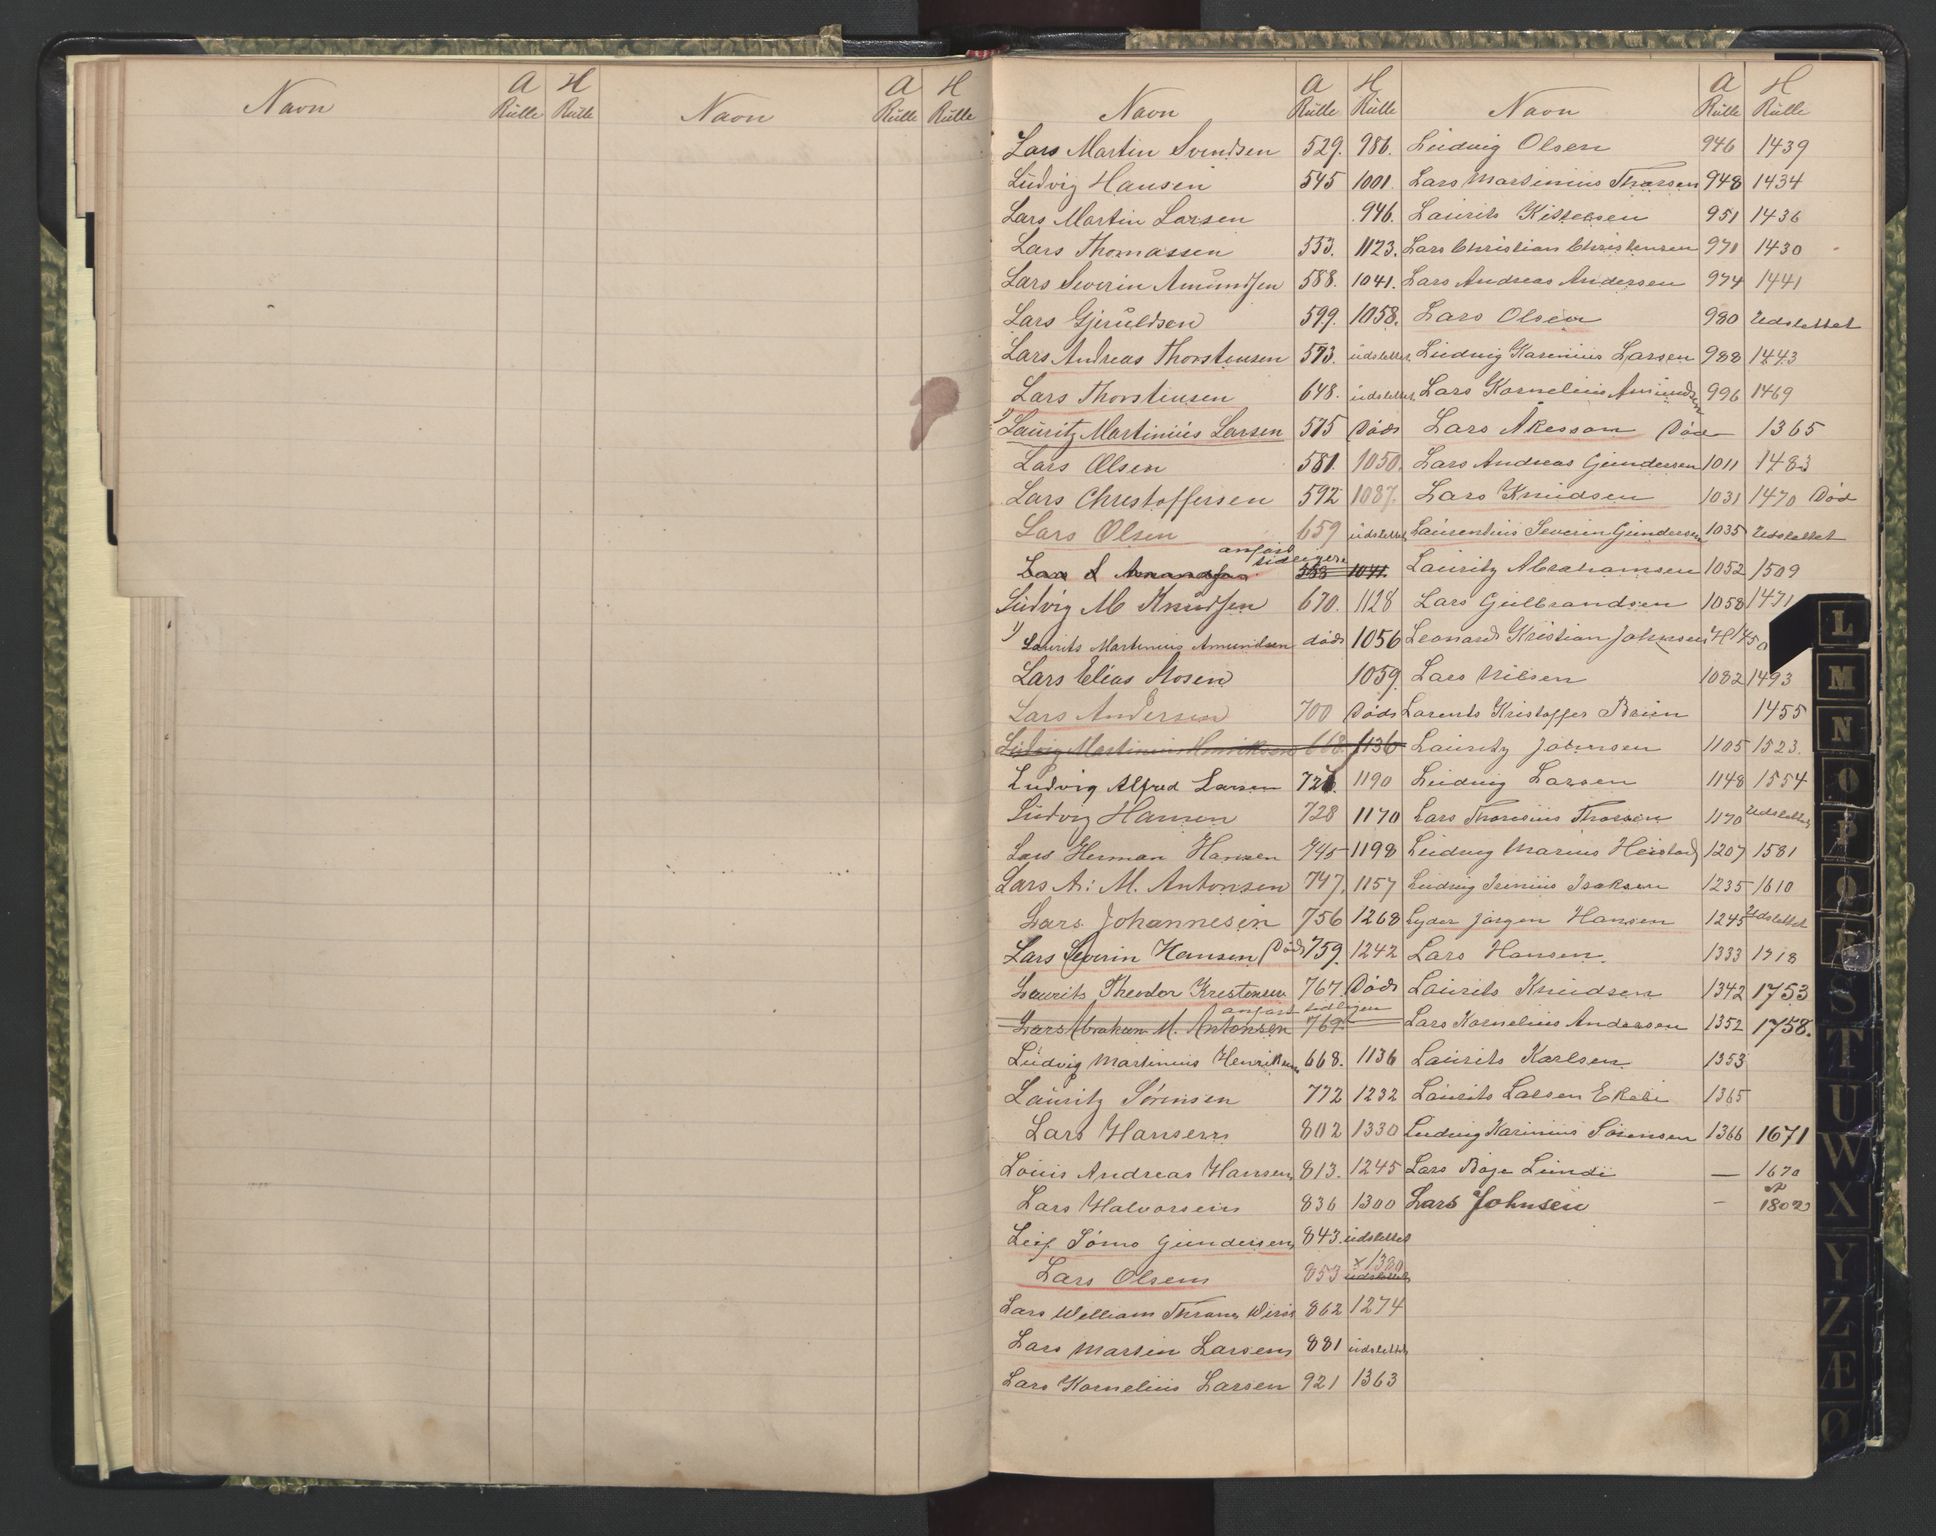 Navn A Rulle H Rulle Navn A Rulle H Rulle
Navn A Rulle H Rulle Navn A Rulle H Rulle
Lars Martin Svendsen 529. 986. Ludvig Olsen 946 1439
Ludvig Hansen 545 1001. Lars Martinius Thorsen 948 1434
Lars Martin Larsen 946. Laurits Kittelsen 951 1436
Lars Thomassen 553. 1123. Lars Christian Christensen 970 1430
Lars Severin Amundsen 588. 1041. Lars Andreas Andersen 974 1441
Lars Gjeruldsen 599. 1058. Lars Olsen 980 Udslettet
Lars Andreas Thorstensen 573. udslettet Ludvig Karenius Larsen 988 1443
Lars Thorstensen 648. udslettet Lars Kornelius Amundsen 996 1469
1) Lauritz Martinius Larsen 575 Død Lars Åkesson Død 1365
Lars Olsen 581. 1050. Lars Andreas Gundersen 1011 1483
Lars Christoffersen 592 1087. Lars Knudsen 1031 1470 Død
Lars Olsen 659 udslettet Laurentius Severin Gundersen 1035 Udslettet
Lars S Amundsen anført tidligere 588 1041. Lauritz Abrahamsen 1052 1509
Ludvig M Knudsen 670. 1128 Lars Gulbrandsen 1058 1471
1) Laurits Martinius Amundsen død 1056 Leonard Kristian Johnsen H 1450
Lars Elias Mosen 1059. Lars Nilsen 1082 1493
Lars Andersen 700 Død Lorents Kristoffer Bruun 1455
Ludvig Martinius Henriksen 668. 1136 Lauritz Johnsen 1105 1523.
Ludvig Alfred Larsen 726. 1190 Ludvig Larsen 1148 1554
Ludvig Hansen 728 1170 Lars Thorenius Thorsen 1170 Udslettet
Lars Herman Hansen 745 1198 Ludvig Marius Heistad 1207 1581
Lars A: M. Antonsen 747. 1157 Ludvig Irenius Isaksen 1235 1610
Lars Johannesen 756 1268 Lyder Jørgen Hansen 1245 Udslettet
Lars Severin Hansen (Død) 759. 1242 Lars Hansen. 1333 1718
Laurits Theodor Kristensen 767. Død Laurits Knudsen 1342 1753
Lars Abraham M. Antonsen anført tidligere 769. Lars Kornelius Andersen 1352 1758.
Ludvig Martinius Henriksen 668. 1136 Laurits Karlsen 1353
Lauritz Sørensen 772 1232 Laurits Larsen Ekebe 1365
Lars Hansen 802 1330 Ludvig Karinius Sørensen 1366 1671
Louis Andreas Hansen 813. 1245 Lars Boje Lunde — 1670
Lars Halvorsen 836 1300 Lars Johnsen - 1802
Leif Tømo Gundersen 843. udslettet
Lars Olsen 853 x 1380 udslettet
Lars William Thrane 862 1274
Lars Martin Larsen 881 udslettet
Lars Kornelius Larsen 921 1363
L
M
N
O
P
Q
R
S
T
U
W
X
Y
Z
Æ
Ø